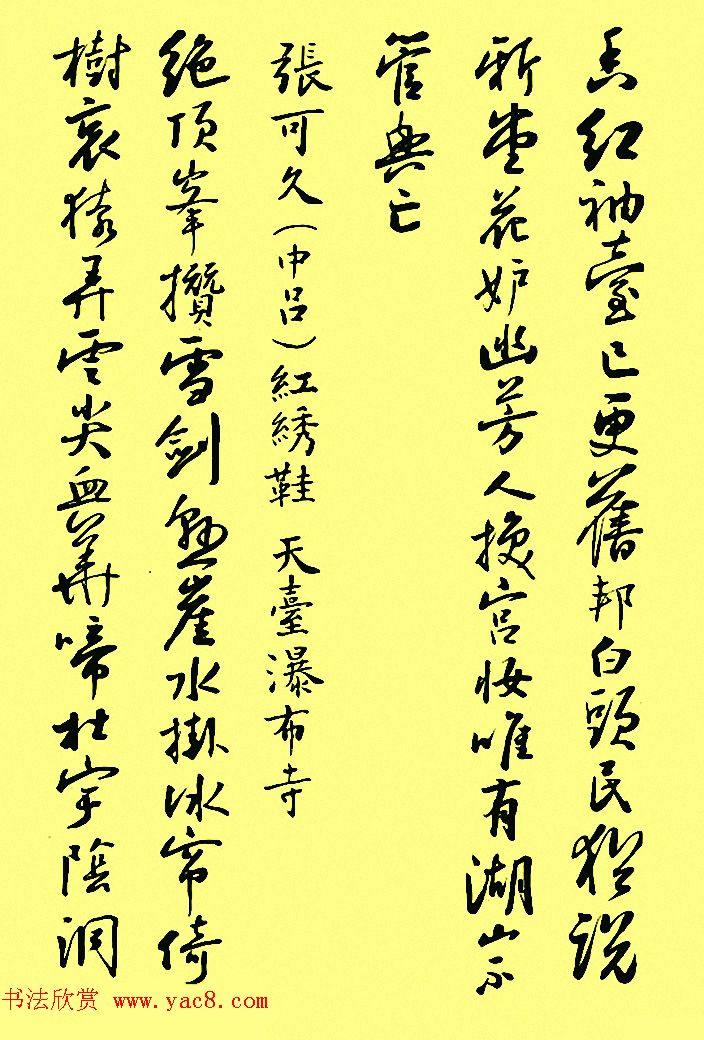 紅袖臺已更舊邦白頭民猶說
新堂花妒幽芳人換宮妝唯有湖山不
管興亡
張可久(中呂)紅綉鞋 天臺瀑布寺
絕頂峯攢雪劍懸崖水掛冰帘倚
樹哀猿弄雲尖血華啼杜宇陰洞
书法欣赏 www.yac8.com